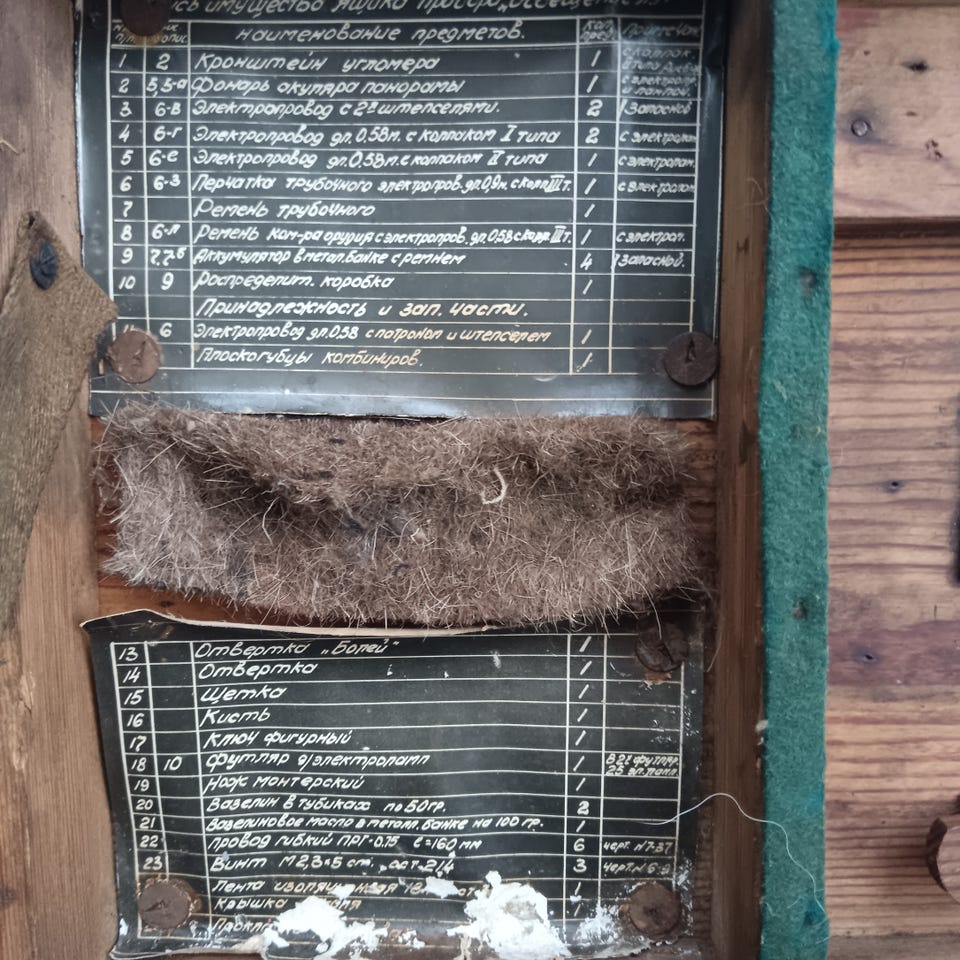 имущество ящика прибора „Освещение
наименование предметов.
1 2 Кронштейн угломера 1 с колпак.
2 5,5-а Фонарь окуляра панорамы 1 с электропр. и лампой.
3 6-в Электропровод с 2я штепселями. 2 1 Запасной
4 6-г Электропровод дл. 0.58м. с колпаком I типа 2 с электролам.
5 6-е Электропровод дл. 0.58м. с колпаком II типа 1 с электролам.
6 6-з Перчатка трубочного электропров. дл. 0,9м. с колп. III т. 1 с электролам
7 Ремень трубочного 1
8 6-л Ремень ком-ра орудия с электропров. дл. 0.58 с колп. III т. 1 с электрол.
9 7,7-б Аккумулятор в метал. банке с ремнем 4 1 Запасной.
10 9 Распределит. коробка 1
Принадлежность и зап. части.
6 Электропровод дл. 0.58 с патроном и штепселем 1
Плоскогубцы комбиниров. 1
13 Отвертка 1
14 Отвертка 1
15 Щетка 1
16 Кисть 1
17 Ключ фигурный 1
18 10 Футляр д/электроламп 1 в 2х футляр. 25 эл. ламп.
19 Нож монтерский 1
20 Вазелин в тубиках по 50гр. 2
21 Вазелиновое масло в металл. банке на 100 гр. 1
22 Провод гибкий ПРГ-0.75 ℓ=160мм 6 черт. №7-37
23 Винт М2,3×5 ст. 3 черт. №6-9
Лента 1
Крышка 1